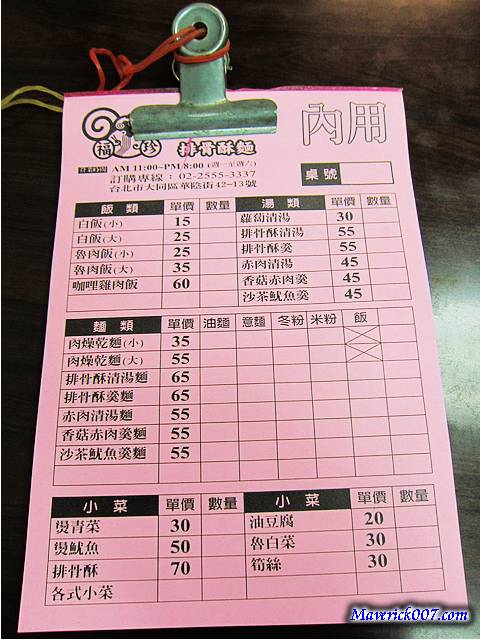 內用
福珍 排骨酥麵
營業時間 AM 11:00~PM 8:00 (週一至週六)
訂購專線：02-2555-3337
台北市大同區華陰街42-13號
桌號
飯類 單價 數量 湯類 單價 數量
白飯(小) 15 蘿蔔清湯 30
白飯(大) 25 排骨酥清湯 55
魯肉飯(小) 25 排骨酥羹 55
魯肉飯(大) 35 赤肉清湯 45
咖哩雞肉飯 60 香菇赤肉羹 45
沙茶魷魚羹 45
麵類 單價 油麵 意麵 冬粉 米粉 飯
肉燥乾麵(小) 35
肉燥乾麵(大) 55
排骨酥清湯麵 65
排骨酥羹麵 65
赤肉清湯麵 55
香菇赤肉羹麵 55
沙茶魷魚羹麵 55
小菜 單價 數量 小菜 單價 數量
燙青菜 30 油豆腐 20
燙魷魚 50 魯白菜 30
排骨酥 70 筍絲 30
各式小菜
Maverick007.com